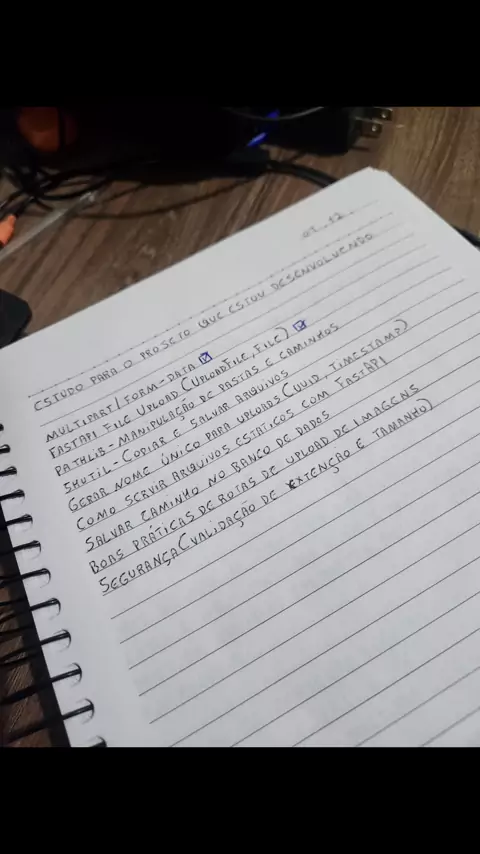 02.12.
ESTUDO PARA O PROJETO QUE ESTOU DESENVOLVENDO
MULTIPART/FORM-DATA ☑
FASTAPI FILE UPLOAD (UPLOADFILE, FILE) ☑
PATHLIB - MANIPULAÇÃO DE PASTAS E CAMINHOS
SHUTIL - COPIAR E SALVAR ARQUIVOS
GERAR NOME ÚNICO PARA UPLOADS (UUID, TIMESTAMP)
COMO SERVIR ARQUIVOS ESTÁTICOS COM FASTAPI
SALVAR CAMINHO NO BANCO DE DADOS
BOAS PRÁTICAS DE ROTAS DE UPLOAD DE IMAGENS
SEGURANÇA (VALIDAÇÃO DE EXTENÇÃO E TAMANHO)